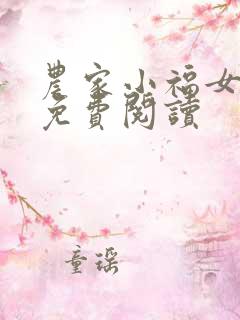 農家小福女
免費閱讀
童瑤